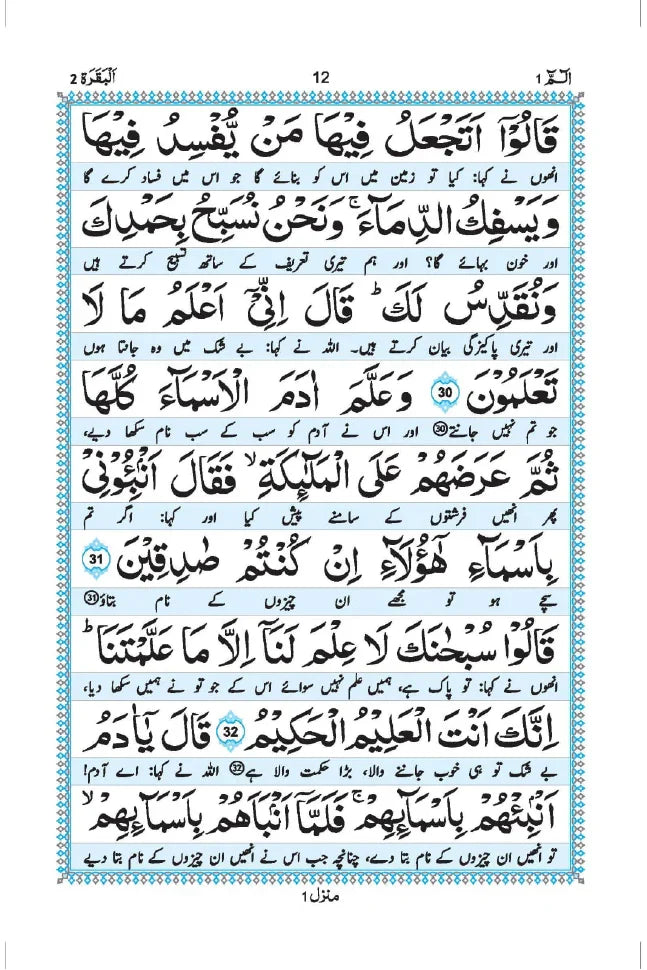 الٓمّٓ 1 12 اَلْبَقَرَة 2
قَالُوْۤا اَتَجْعَلُ فِيْهَا مَنْ يُّفْسِدُ فِيْهَا
انھوں نے کہا: کیا تو زمین میں اس کو بنائے گا جو اس میں فساد کرے گا
وَيَسْفِكُ الدِّمَآءَ ۚ وَنَحْنُ نُسَبِّحُ بِحَمْدِكَ
اور خون بہائے گا؟ اور ہم تیری تعریف کے ساتھ تسبیح کرتے ہیں
وَنُقَدِّسُ لَكَ ؕ قَالَ اِنِّىْۤ اَعْلَمُ مَا لَا
اور تیری پاکیزگی بیان کرتے ہیں۔ اللہ نے کہا: بے شک میں وہ جانتا ہوں
تَعْلَمُوْنَ 30 وَعَلَّمَ اٰدَمَ الْاَسْمَآءَ كُلَّهَا
جو تم نہیں جانتے 30 اور اس نے آدم کو سب کے سب نام سکھا دیے،
ثُمَّ عَرَضَهُمْ عَلَى الْمَلٰٓئِكَةِ ۙ فَقَالَ اَنْۢبِـُٔوْنِىْ
پھر انھیں فرشتوں کے سامنے پیش کیا اور کہا: اگر تم
بِاَسْمَآءِ هٰٓؤُلَآءِ اِنْ كُنْتُمْ صٰدِقِيْنَ 31
سچے ہو تو مجھے ان چیزوں کے نام بتاؤ 31
قَالُوْا سُبْحٰنَكَ لَا عِلْمَ لَنَاۤ اِلَّا مَا عَلَّمْتَنَا ؕ
انھوں نے کہا: تو پاک ہے، ہمیں علم نہیں سوائے اس کے جو تو نے ہمیں سکھا دیا،
اِنَّكَ اَنْتَ الْعَلِيْمُ الْحَكِيْمُ 32 قَالَ يٰۤاٰدَمُ
بے شک تو ہی خوب جاننے والا، بڑا حکمت والا ہے 32 اللہ نے کہا: اے آدم!
اَنْۢبِئْهُمْ بِاَسْمَآئِهِمْ ۚ فَلَمَّاۤ اَنْۢبَاَهُمْ بِاَسْمَآئِهِمْ ۙ
تو انھیں ان چیزوں کے نام بتا دے، چنانچہ جب اس نے انھیں ان چیزوں کے نام بتا دیے
منزل 1